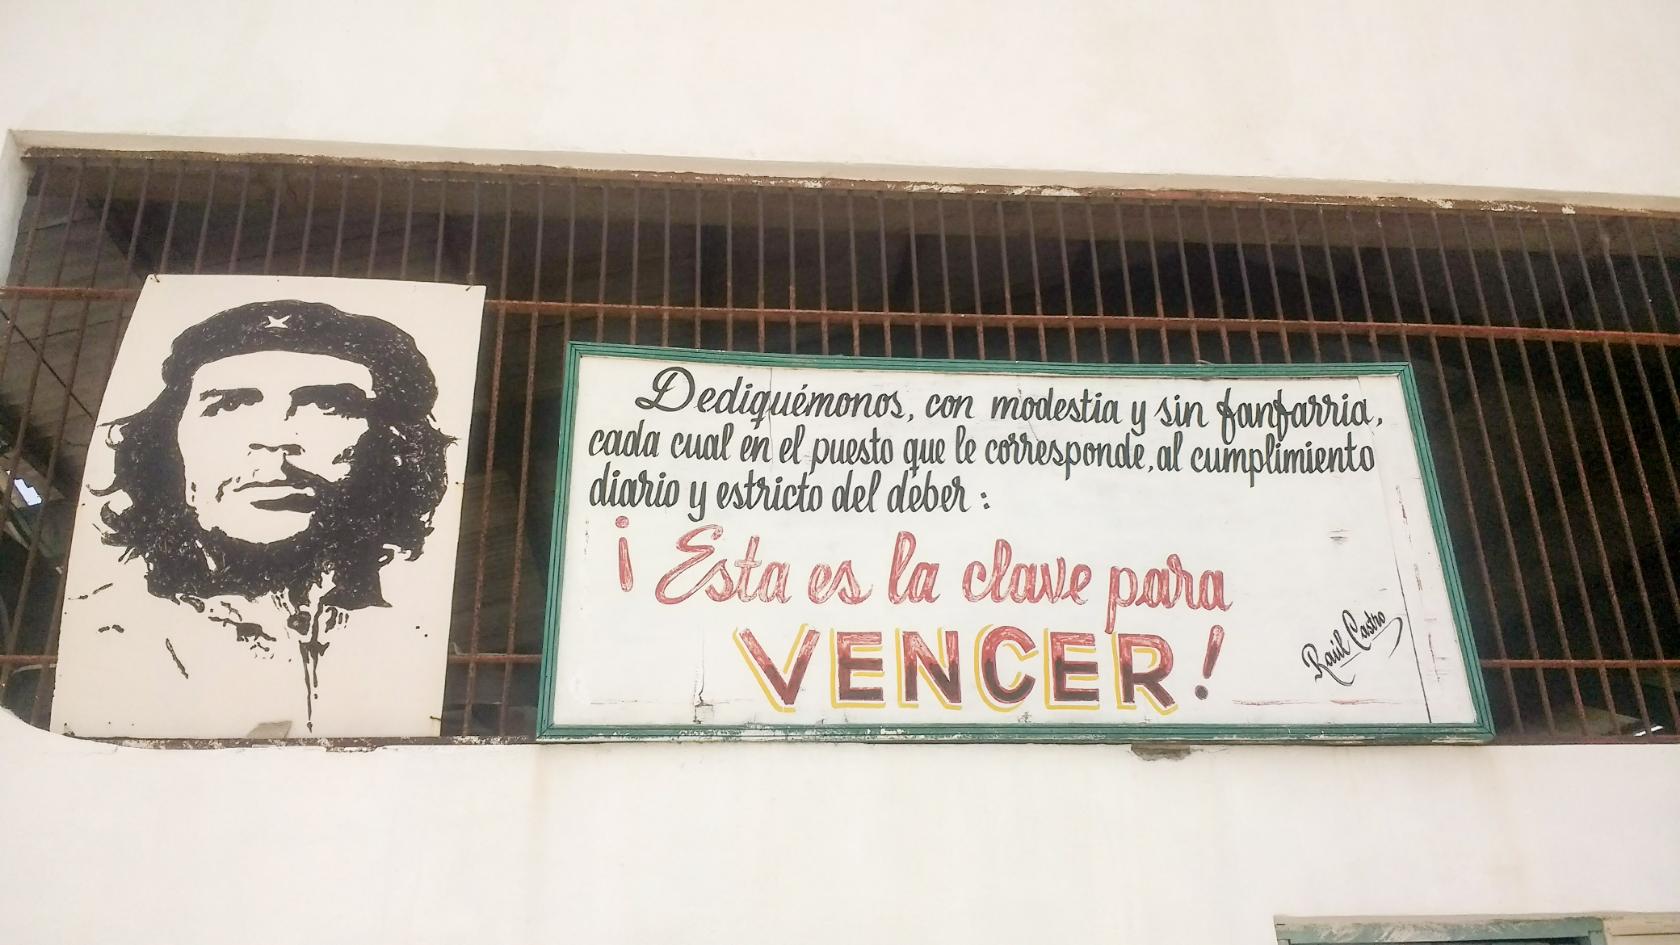 Dediquémonos, con modestia y sin fanfarria,
cada cual en el puesto que le corresponde, al cumplimiento
diario y estricto del deber:
¡Esta es la clave para
VENCER!
Raúl Castro